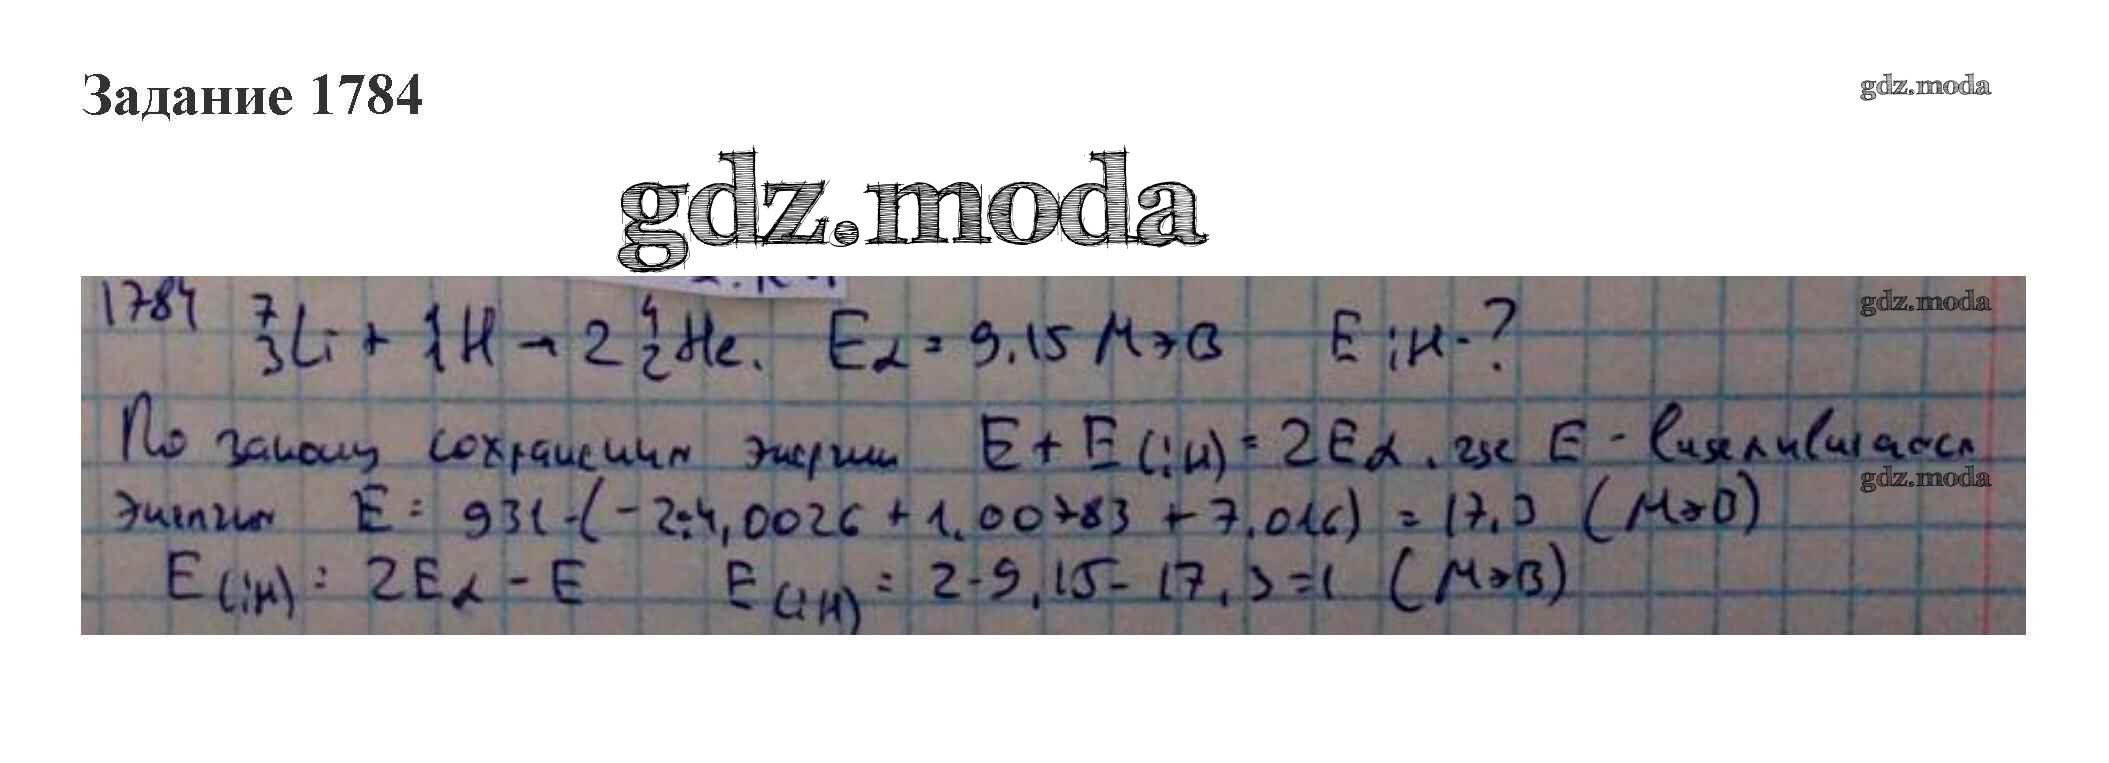 Задание 1784
gdz.moda
gdz.moda
1784 ⁷₃Li + ¹₁H → 2 ⁴₂He. Eα = 9,15 МэВ E ¡H - ?
gdz.moda
По закону сохранения энергии E + E(¡H) = 2Eα, где E - выделившаяся
gdz.moda
энергия E = 931·(-2·4,0026 + 1,00783 + 7,016) = 17,3 (МэВ)
E(¡H) = 2Eα - E E(¡H) = 2·9,15 - 17,3 = 1 (МэВ)